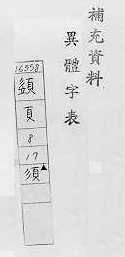 補充資料
異體字表
16558
頁
8
17
須▲